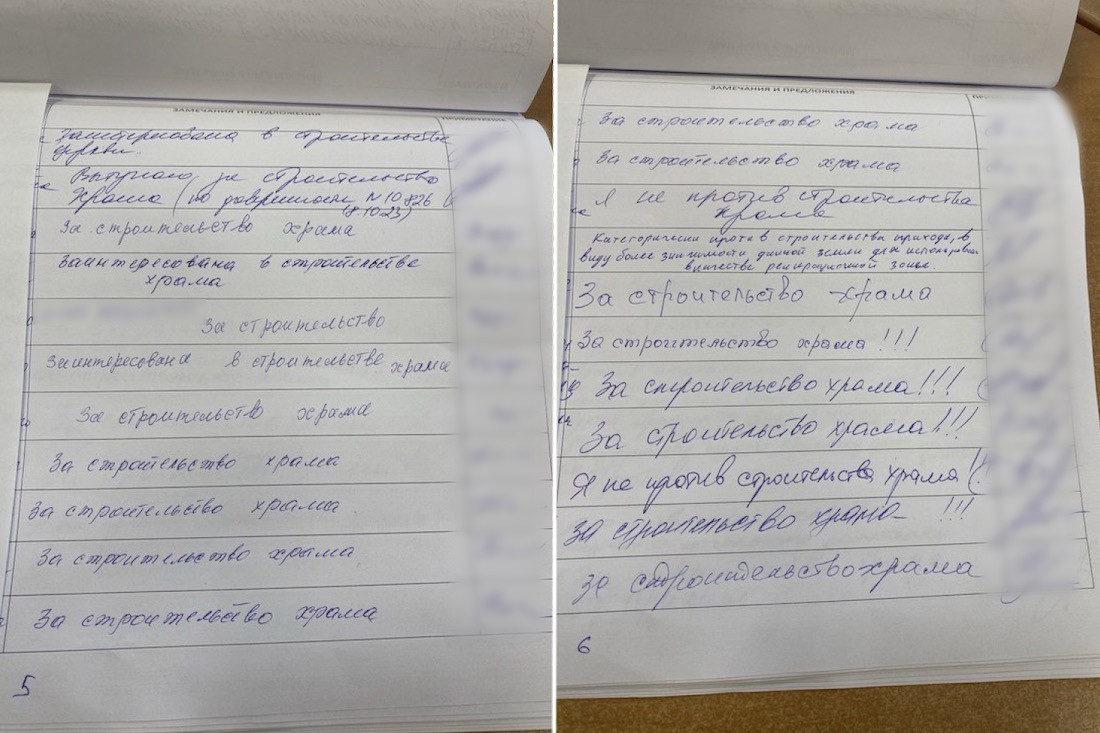 ЗАМЕЧАНИЯ И ПРЕДЛОЖЕНИЯ
ПРИМЕЧАНИЕ
в строительстве
церкви.
за строительство
Храма (по доверенности N 10826
8.10.23)
За строительство храма
Заинтересована в строительстве
храма
За строительство
Заинтересована в строительстве храма
За строительство храма
За строительство храма
За строительство храма
За строительство храма
За строительство храма
5
ЗАМЕЧАНИЯ И ПРЕДЛОЖЕНИЯ
За строительство храма
За строительство храма
Я не против строительства
храма
Категорически против строительства прихода, в
виду более значимости данной земли для
в качестве рекреационной зоны.
За строительство храма
За строительство храма !!!
За строительство храма!!!
За строительство храма!!!
Я не против строительства храма!
За строительство храма !!!
за строительство храма
6